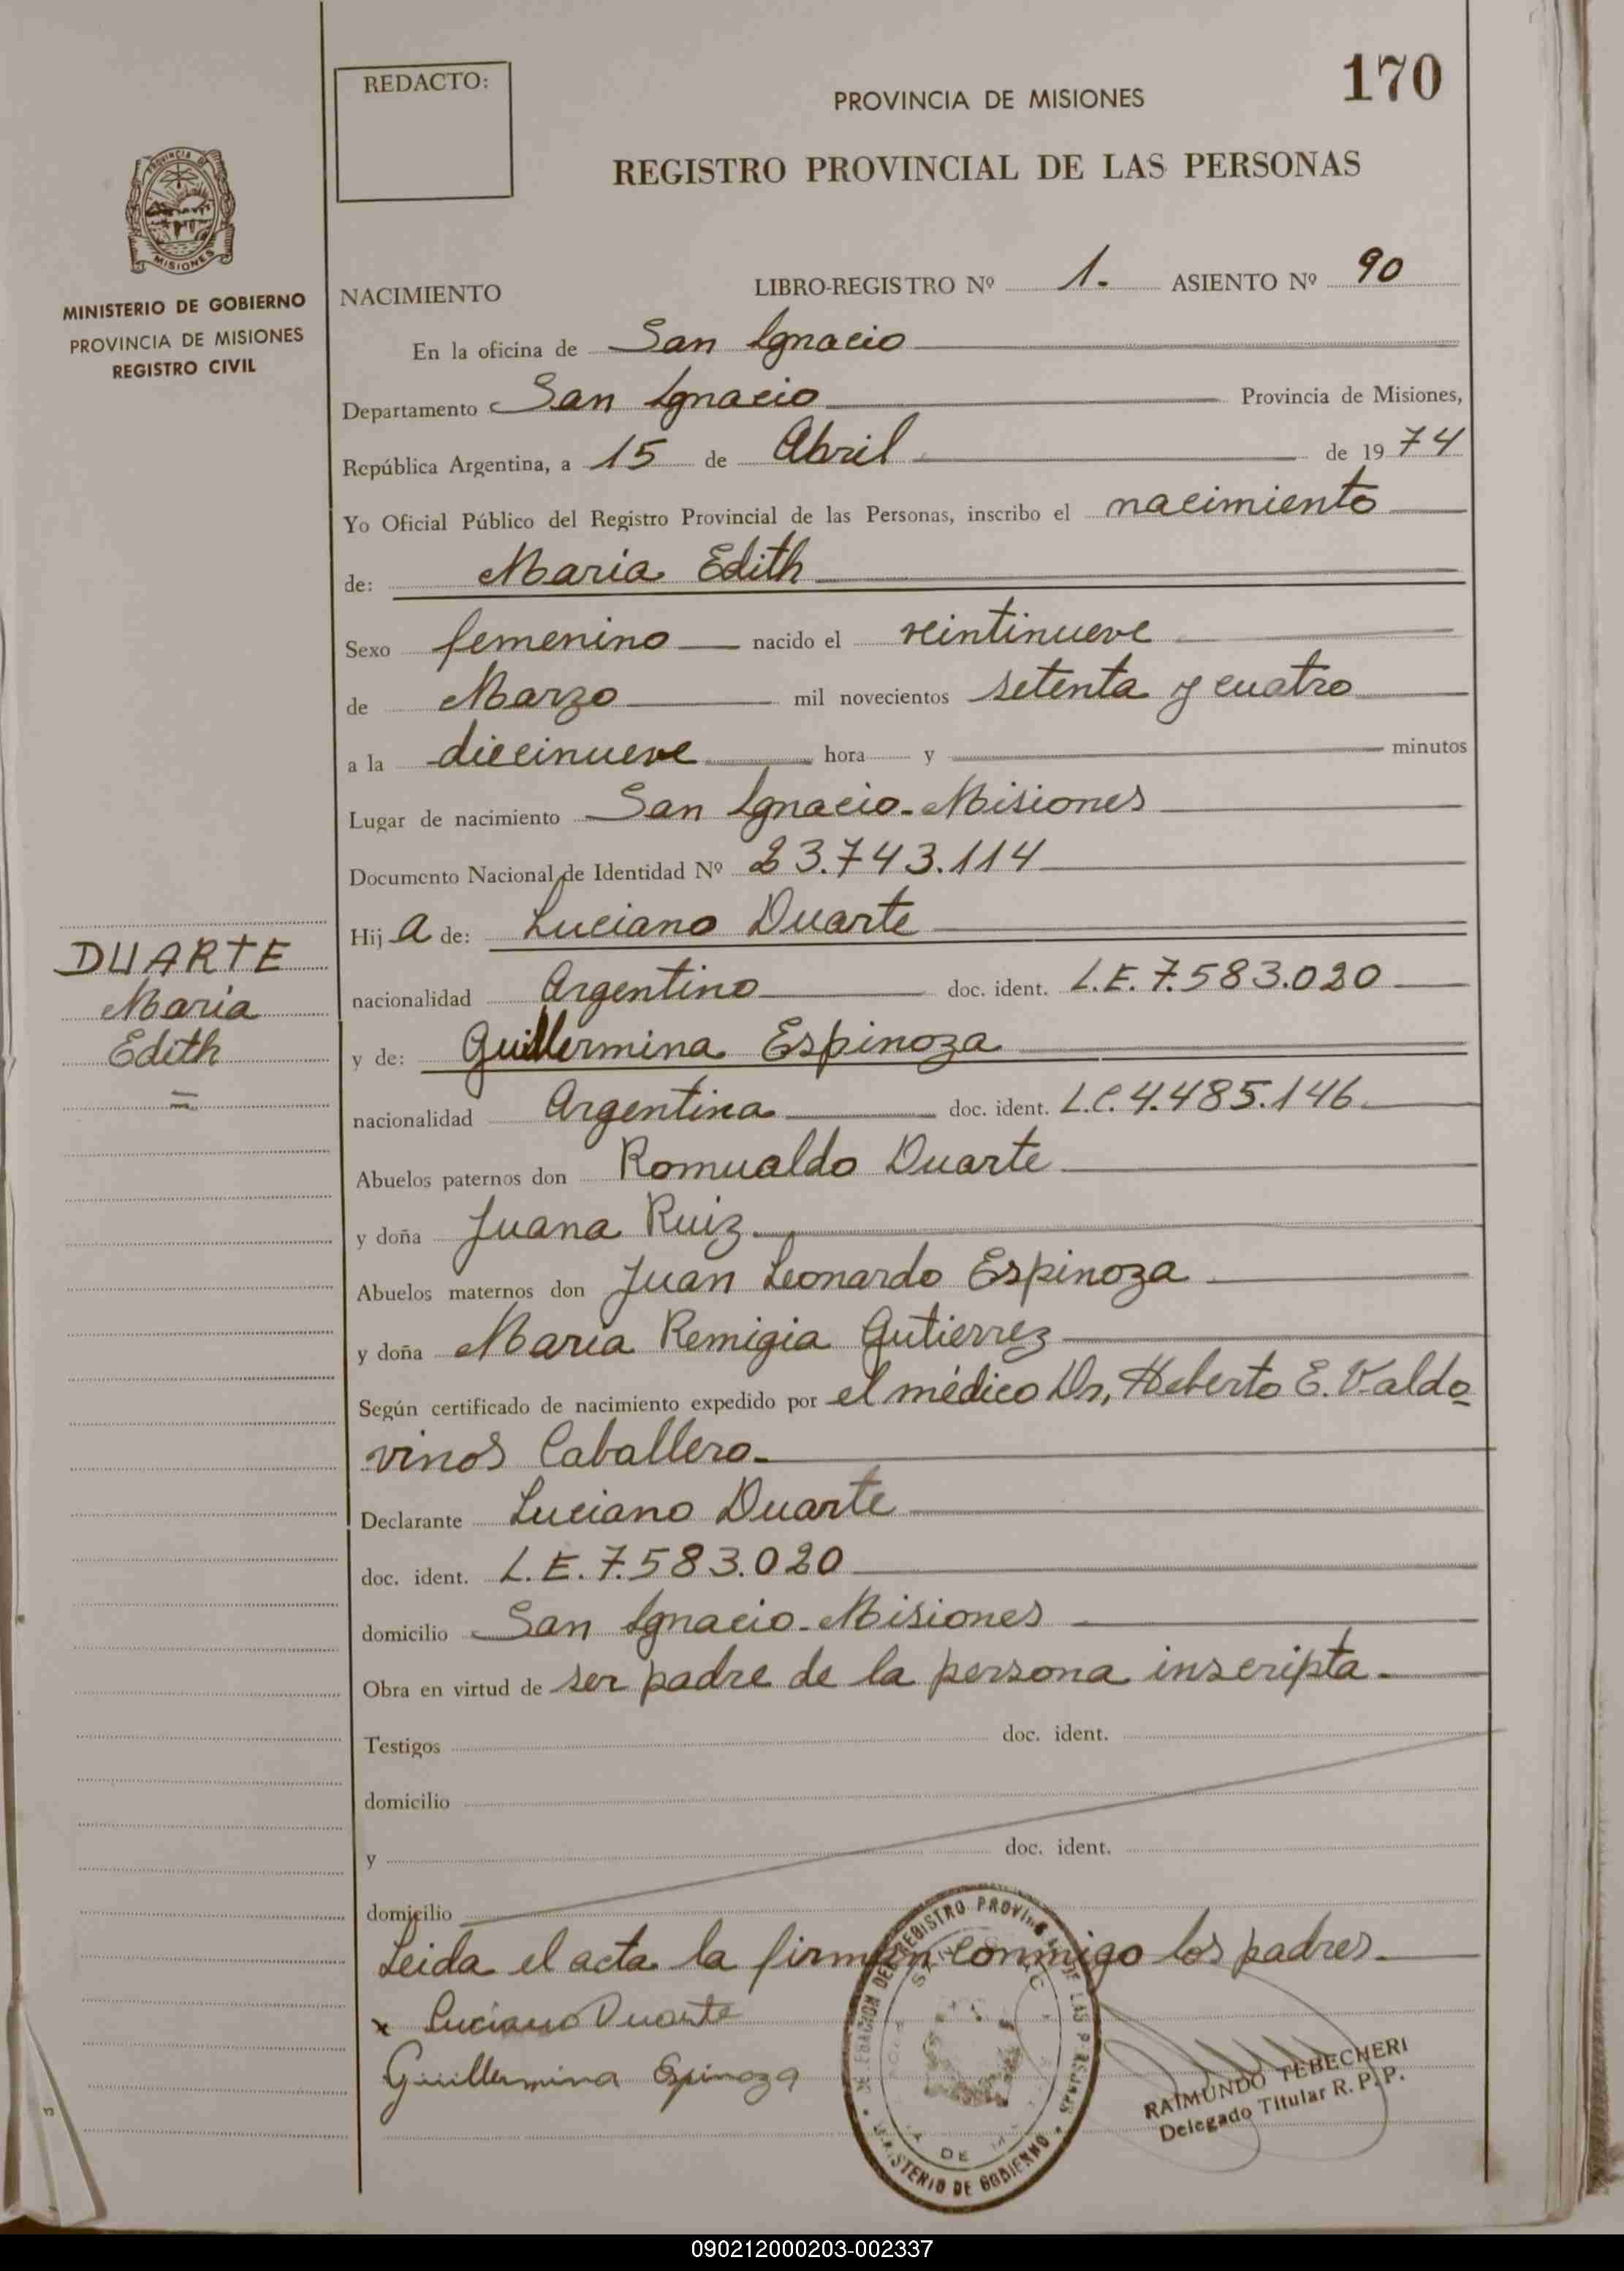 170
REDACTO:
PROVINCIA DE MISIONES
REGISTRO PROVINCIAL DE LAS PERSONAS
PROVINCIA DE
MISIONES
MINISTERIO DE GOBIERNO
PROVINCIA DE MISIONES
REGISTRO CIVIL
NACIMIENTO LIBRO-REGISTRO Nº 1. ASIENTO Nº 90
En la oficina de San Ignacio
Departamento San Ignacio Provincia de Misiones,
República Argentina, a 15 de Abril de 1974
Yo Oficial Público del Registro Provincial de las Personas, inscribo el nacimiento
de: María Edith
Sexo femenino nacido el veintinueve
de Marzo mil novecientos setenta y cuatro
a la diecinueve hora y minutos
Lugar de nacimiento San Ignacio-Misiones
Documento Nacional de Identidad Nº 23.743.114
Hija de: Luciano Duarte
nacionalidad Argentino doc. ident. L.E. 7.583.020
y de: Guillermina Espinoza
nacionalidad Argentina doc. ident. L.C. 4.485.146
Abuelos paternos don Romualdo Duarte
y doña Juana Ruiz
Abuelos maternos don Juan Leonardo Espinoza
y doña María Remigia Gutierrez
Según certificado de nacimiento expedido por el médico Dr, Heberto E. Valdo
vinos Caballero.
Declarante Luciano Duarte
doc. ident. L.E. 7.583.020
domicilio San Ignacio-Misiones
Obra en virtud de ser padre de la persona inscripta.
Testigos doc. ident.
domicilio
y doc. ident.
domicilio
Leida el acta la firman conmigo los padres.
x Luciano Duarte
Guillermina Espinoza
DUARTE
María
Edith
=
DELEGACION DEL REGISTRO PROVINCIAL DE LAS PERSONAS
MINISTERIO DE GOBIERNO
RAIMUNDO TEBECHERI
Delegado Titular R. P. P.
090212000203-002337